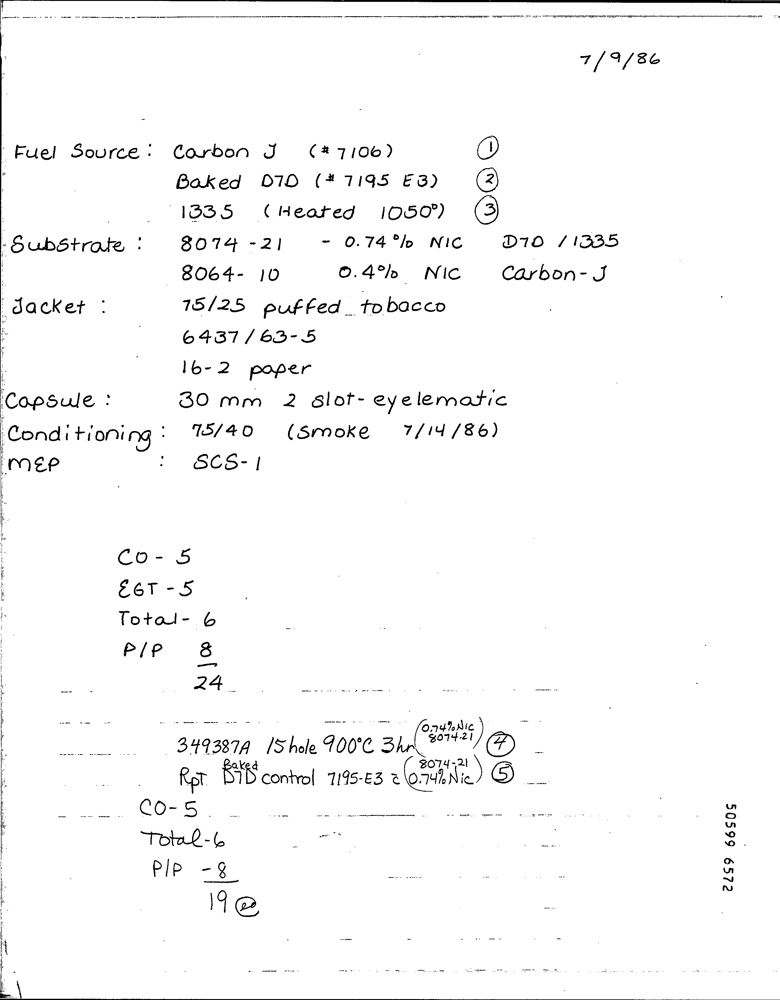 7/9/86
Fuel Source: Carbon J (#7106) ①
Baked D7D (#7195 E3) ②
1335 (Heated 1050°) ③
Substrate: 8074-21 - 0.74% NIC D7D / 1335
8064-10 0.4% NIC Carbon-J
Jacket: 75/25 puffed tobacco
6437/63-5
16-2 paper
Capsule: 30 mm 2 slot-eyelematic
Conditioning: 75/40 (Smoke 7/14/86)
MEP : SCS-1
CO - 5
EGT - 5
Total - 6
P/P 8
24
349387A 15 hole 900°C 3hr (0.74% Nic 8074-21) ④
Rpt. Baked D7D control 7195-E3 c̄ (8074-21 0.74% Nic) ⑤
CO-5
Total-6
P/P -8
19 ea
50599 6572